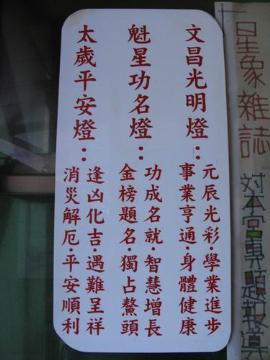 文昌光明燈：
元辰光彩·學業進步
事業亨通·身體健康
魁星功名燈：
功成名就·智慧增長
金榜題名·獨占鰲頭
太歲平安燈：
逢凶化吉·遇難呈祥
消災解厄·平安順利
星象雜誌
對本宮專題報導